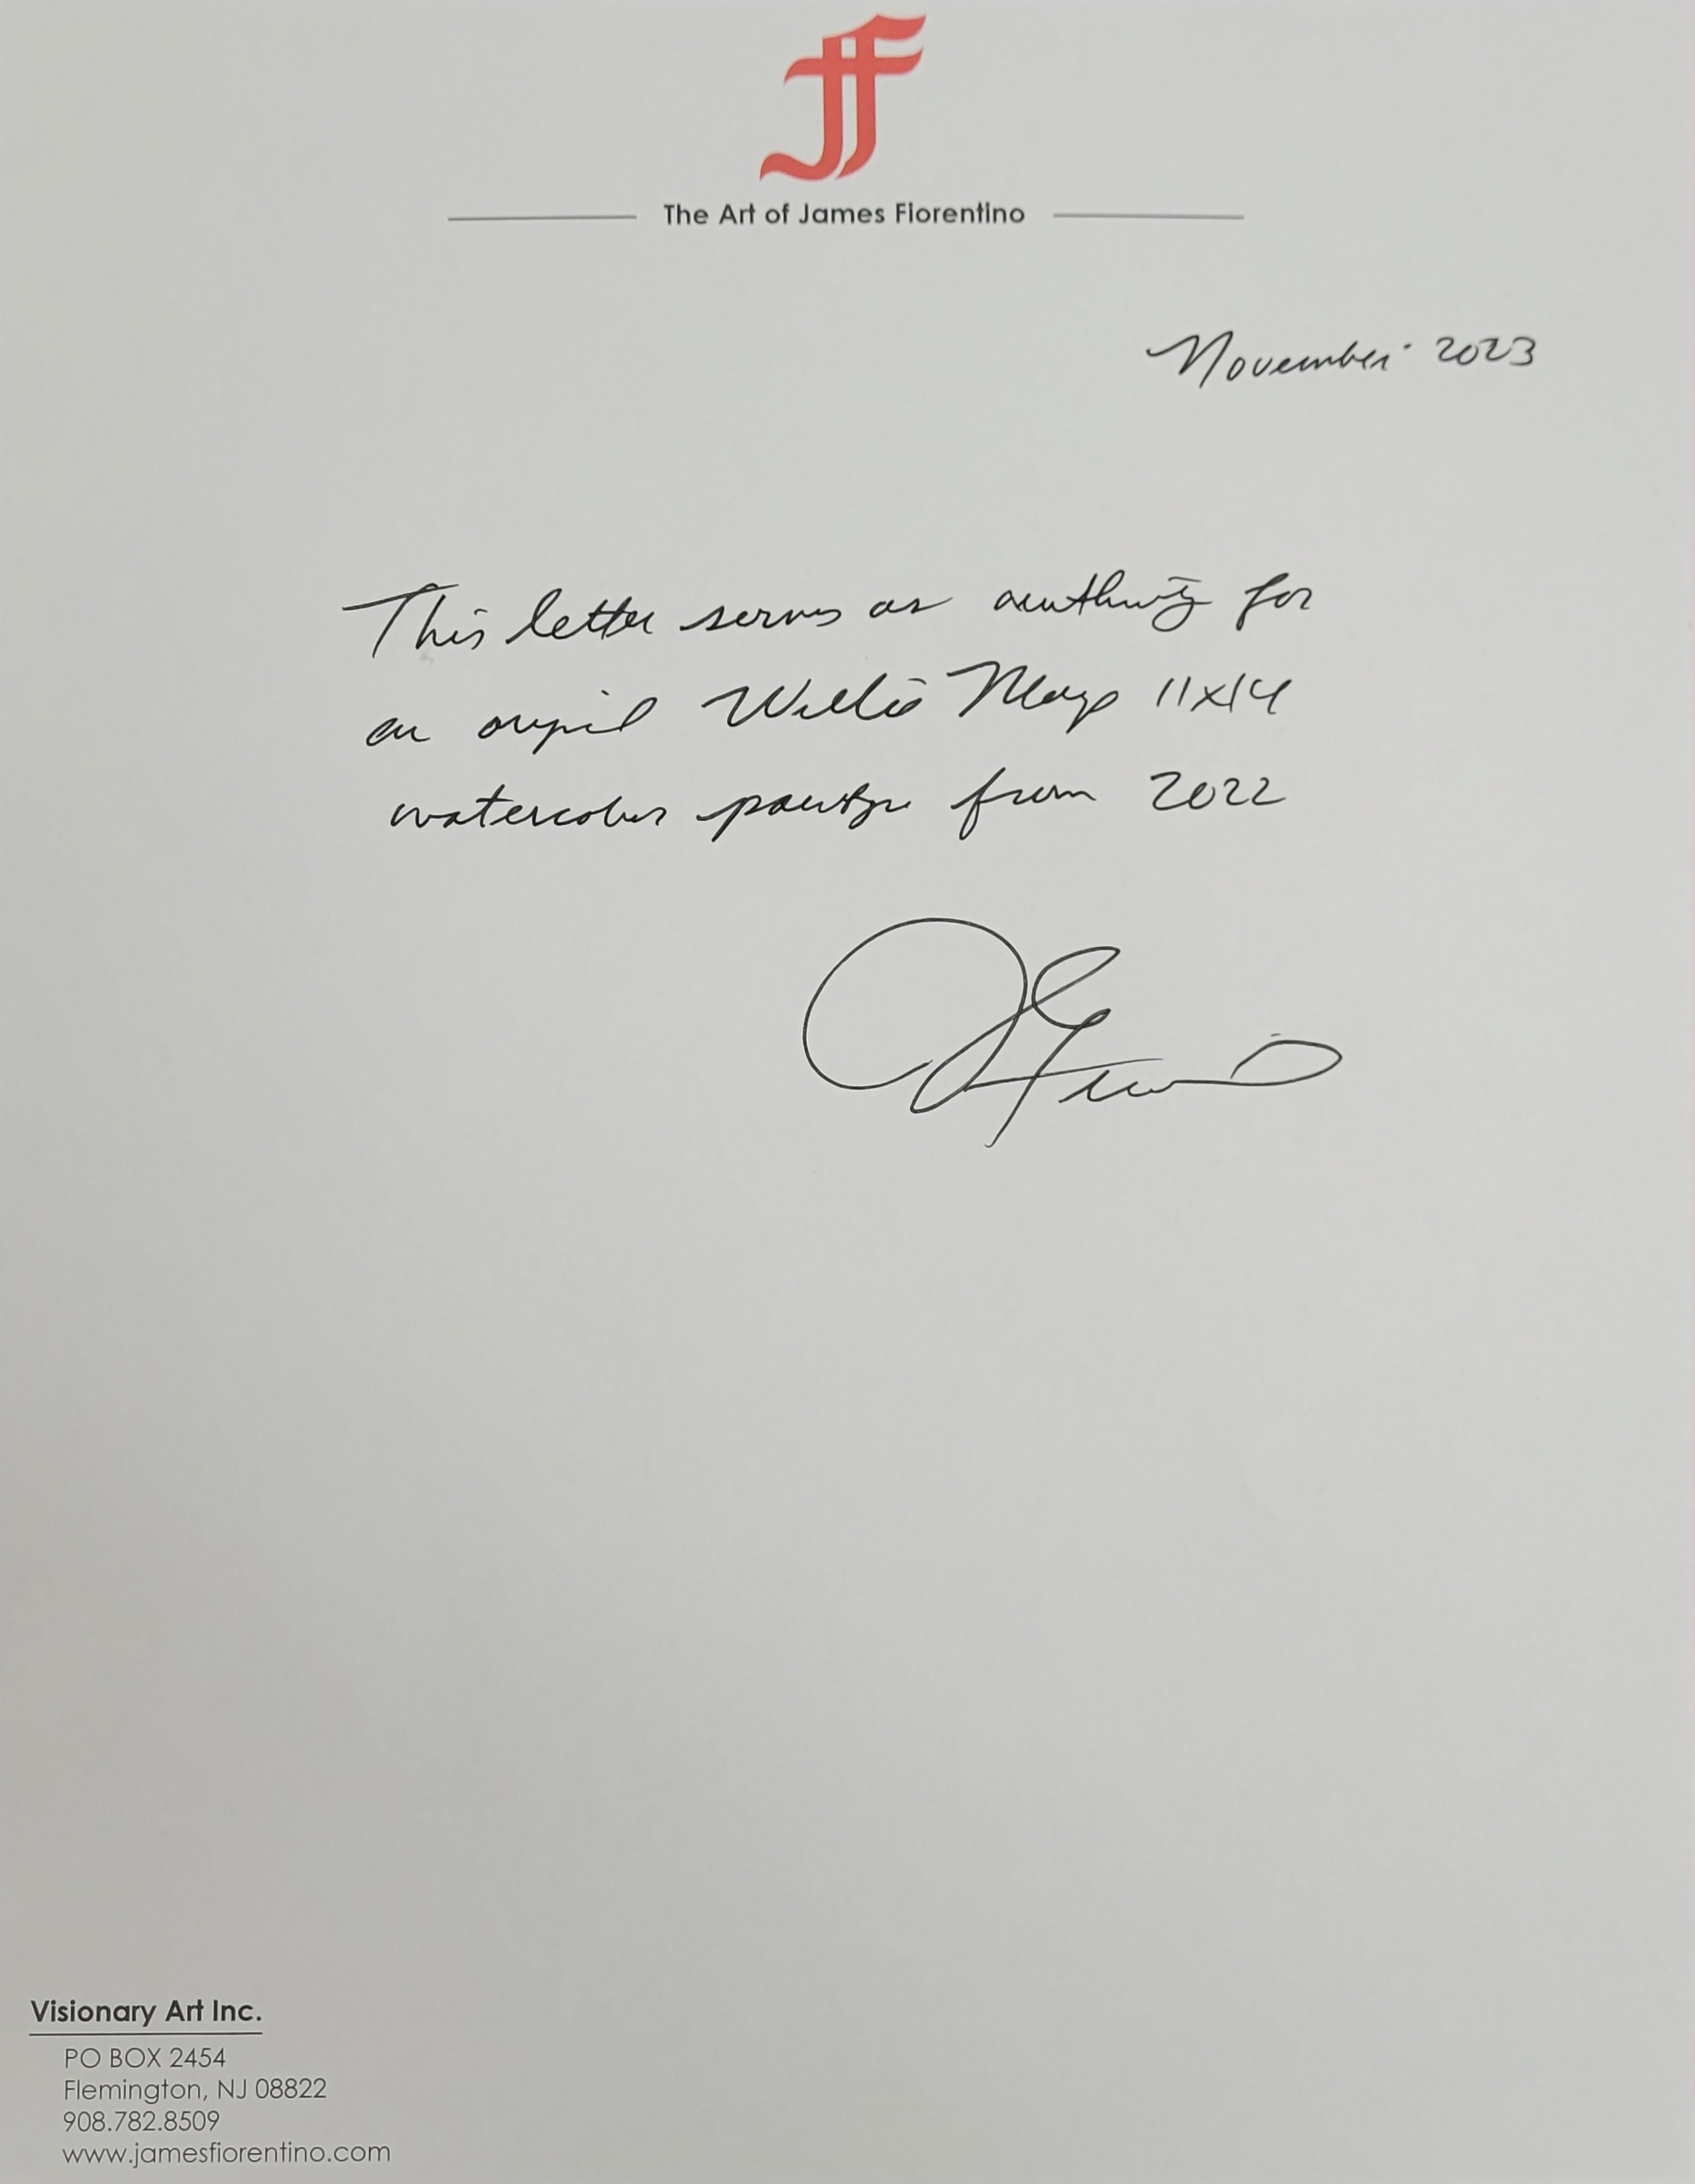 JF
The Art of James Fiorentino
November 2023
This letter serves as for
an original Willie Mays 11x14
watercolor painting from 2022
Visionary Art Inc.
PO BOX 2454
Flemington, NJ 08822
908.782.8509
www.jamesfiorentino.com